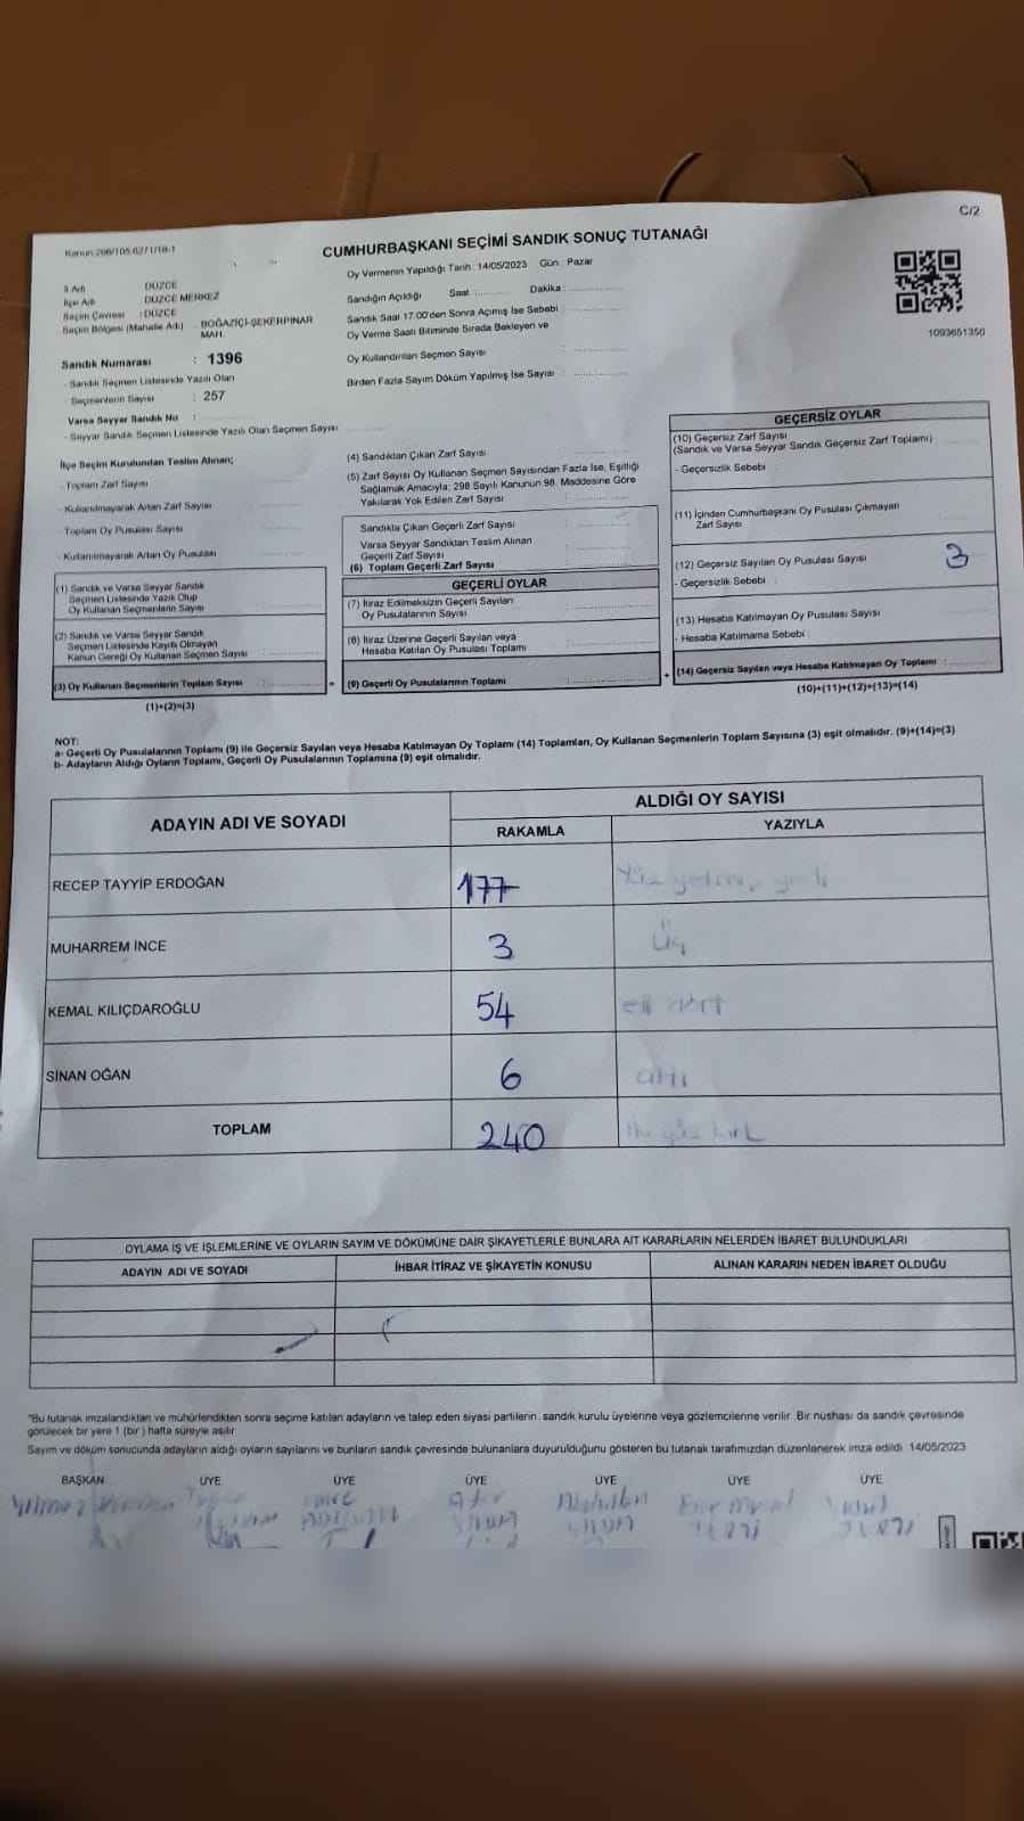 C/2
CUMHURBAŞKANI SEÇİMİ SANDIK SONUÇ TUTANAĞI
Oy Vermenin Yapıldığı Tarih : 14/05/2023 Gün : Pazar
İl Adı DÜZCE
İlçe Adı DÜZCE MERKEZ
Seçim Çevresi : DÜZCE
Seçim Bölgesi (Mahalle Adı) BOĞAZİÇİ-ŞEKERPINAR MAH.
Sandık Numarası : 1396
- Sandık Seçmen Listesinde Yazılı Olan
Seçmenlerin Sayısı : 257
Varsa Seyyar Sandık No :
- Seyyar Sandık Seçmen Listesinde Yazılı Olan Seçmen Sayısı
Sandığın Açıldığı Saat : Dakika :
Sandık Saat 17.00'den Sonra Açılmış İse Sebebi
Oy Verme Saati Bitiminde Sırada Bekleyen ve
Oy Kullandırılan Seçmen Sayısı
Birden Fazla Sayım Döküm Yapılmış İse Sayısı
1093651350
İlçe Seçim Kurulundan Teslim Alınan;
- Toplam Zarf Sayısı
- Kullanılmayarak Artan Zarf Sayısı
Toplam Oy Pusulası Sayısı
- Kullanılmayarak Artan Oy Pusulası
(1) Sandık ve Varsa Seyyar Sandık
Seçmen Listesinde Yazılı Olup
Oy Kullanan Seçmenlerin Sayısı
(2) Sandık ve Varsa Seyyar Sandık
Seçmen Listesinde Kayıtlı Olmayan
Kanun Gereği Oy Kullanan Seçmen Sayısı
(3) Oy Kullanan Seçmenlerin Toplam Sayısı
(1)+(2)=(3)
(4) Sandıktan Çıkan Zarf Sayısı
(5) Zarf Sayısı Oy Kullanan Seçmen Sayısından Fazla İse, Eşitliği
Sağlamak Amacıyla; 298 Sayılı Kanunun 98. Maddesine Göre
Yakılarak Yok Edilen Zarf Sayısı
Sandıkta Çıkan Geçerli Zarf Sayısı
Varsa Seyyar Sandıktan Teslim Alınan
Geçerli Zarf Sayısı
(6) Toplam Geçerli Zarf Sayısı
GEÇERLİ OYLAR
(7) İtiraz Edilmeksizin Geçerli Sayılan
Oy Pusulalarının Sayısı
(8) İtiraz Üzerine Geçerli Sayılan veya
Hesaba Katılan Oy Pusulası Toplamı
(9) Geçerli Oy Pusulalarının Toplamı
GEÇERSİZ OYLAR
(10) Geçersiz Zarf Sayısı
(Sandık ve Varsa Seyyar Sandık Geçersiz Zarf Toplamı)
- Geçersizlik Sebebi
(11) İçinden Cumhurbaşkanı Oy Pusulası Çıkmayan
Zarf Sayısı
(12) Geçersiz Sayılan Oy Pusulası Sayısı 3
- Geçersizlik Sebebi
(13) Hesaba Katılmayan Oy Pusulası Sayısı
- Hesaba Katılmama Sebebi
(14) Geçersiz Sayılan veya Hesaba Katılmayan Oy Toplamı
(10)+(11)+(12)+(13)=(14)
NOT:
a- Geçerli Oy Pusulalarının Toplamı (9) ile Geçersiz Sayılan veya Hesaba Katılmayan Oy Toplamı (14) Toplamları, Oy Kullanan Seçmenlerin Toplam Sayısına (3) eşit olmalıdır. (9)+(14)=(3)
b- Adayların Aldığı Oyların Toplamı, Geçerli Oy Pusulalarının Toplamına (9) eşit olmalıdır.
ADAYIN ADI VE SOYADI ALDIĞI OY SAYISI
RAKAMLA YAZIYLA
RECEP TAYYİP ERDOĞAN 177 Yüz yetmiş yedi
MUHARREM İNCE 3 Üç
KEMAL KILIÇDAROĞLU 54 elli dört
SİNAN OĞAN 6 altı
TOPLAM 240 iki yüz kırk
OYLAMA İŞ VE İŞLEMLERİNE VE OYLARIN SAYIM VE DÖKÜMÜNE DAİR ŞİKAYETLERLE BUNLARA AİT KARARLARIN NELERDEN İBARET BULUNDUKLARI
ADAYIN ADI VE SOYADI İHBAR İTİRAZ VE ŞİKAYETİN KONUSU ALINAN KARARIN NEDEN İBARET OLDUĞU
"Bu tutanak imzalandıktan ve mühürlendikten sonra seçime katılan adayların ve talep eden siyasi partilerin, sandık kurulu üyelerine veya gözlemcilerine verilir. Bir nüshası da sandık çevresinde
görülecek bir yere 1 (bir) hafta süreyle asılır.
Sayım ve döküm sonucunda adayların aldığı oyların sayılarını ve bunların sandık çevresinde bulunanlara duyurulduğunu gösteren bu tutanak tarafımızdan düzenlenerek imza edildi. 14/05/2023
BAŞKAN ÜYE ÜYE ÜYE ÜYE ÜYE ÜYE